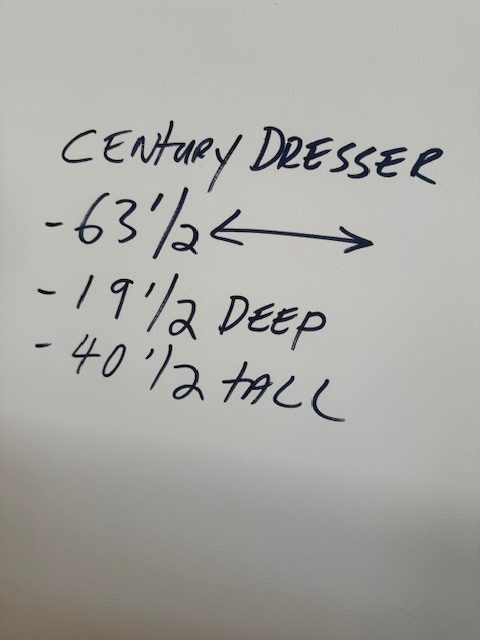 CENTURY DRESSER
- 63 1/2 ↔
- 19 1/2 DEEP
- 40 1/2 TALL